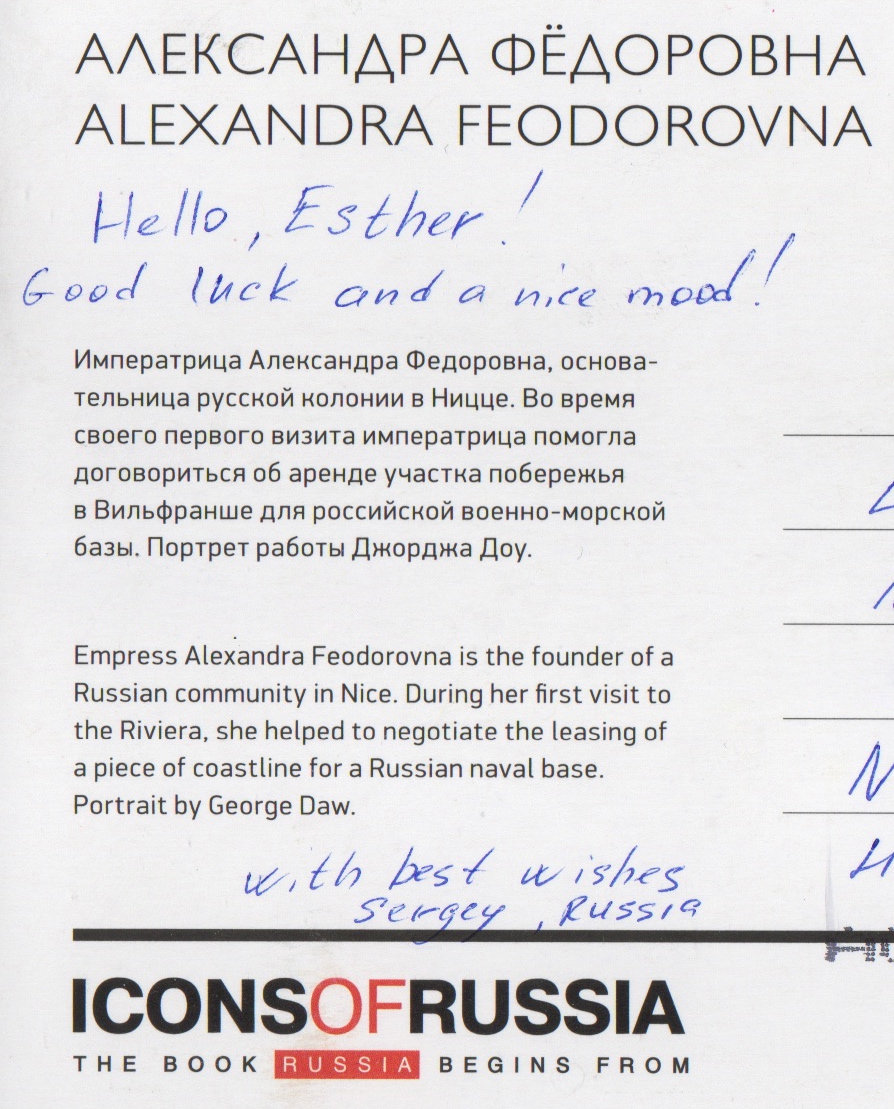 АЛЕКСАНДРА ФЁДОРОВНА
ALEXANDRA FEODOROVNA
Hello, Esther!
Good luck and a nice mood!
Императрица Александра Федоровна, основа-
тельница русской колонии в Ницце. Во время
своего первого визита императрица помогла
договориться об аренде участка побережья
в Вильфранше для российской военно-морской
базы. Портрет работы Джорджа Доу.
Empress Alexandra Feodorovna is the founder of a
Russian community in Nice. During her first visit to
the Riviera, she helped to negotiate the leasing of
a piece of coastline for a Russian naval base.
Portrait by George Daw.
with best wishes
Sergey, Russia
ICONSOFRUSSIA
THE BOOK RUSSIA BEGINS FROM